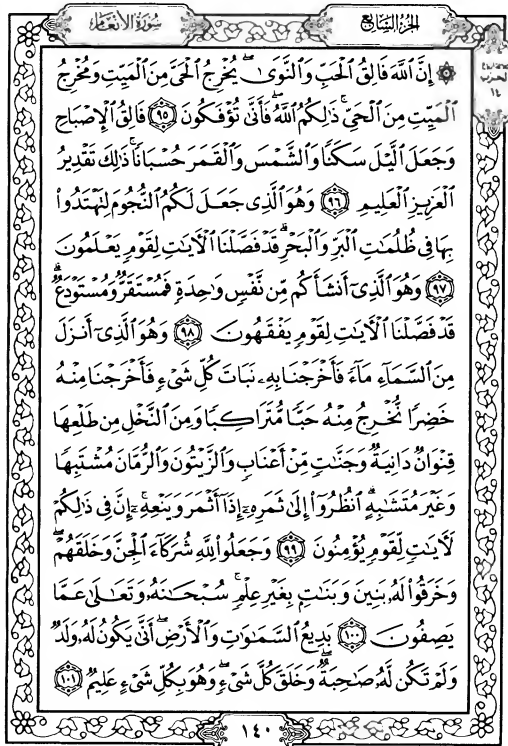 سُورَةُ الأَنْعَام
الجزء السابع
الحزب
١٤
۞ إِنَّ ٱللَّهَ فَالِقُ ٱلْحَبِّ وَٱلنَّوَىٰ ۖ يُخْرِجُ ٱلْحَىَّ مِنَ ٱلْمَيِّتِ وَمُخْرِجُ
ٱلْمَيِّتِ مِنَ ٱلْحَىِّ ۚ ذَٰلِكُمُ ٱللَّهُ ۖ فَأَنَّىٰ تُؤْفَكُونَ ٩٥ فَالِقُ ٱلْإِصْبَاحِ
وَجَعَلَ ٱلَّيْلَ سَكَنًا وَٱلشَّمْسَ وَٱلْقَمَرَ حُسْبَانًا ۚ ذَٰلِكَ تَقْدِيرُ
ٱلْعَزِيزِ ٱلْعَلِيمِ ٩٦ وَهُوَ ٱلَّذِى جَعَلَ لَكُمُ ٱلنُّجُومَ لِتَهْتَدُوا۟
بِهَا فِى ظُلُمَٰتِ ٱلْبَرِّ وَٱلْبَحْرِ ۗ قَدْ فَصَّلْنَا ٱلْءَايَٰتِ لِقَوْمٍ يَعْلَمُونَ
٩٧ وَهُوَ ٱلَّذِىٓ أَنشَأَكُم مِّن نَّفْسٍ وَٰحِدَةٍ فَمُسْتَقَرٌّ وَمُسْتَوْدَعٌ ۗ
قَدْ فَصَّلْنَا ٱلْءَايَٰتِ لِقَوْمٍ يَفْقَهُونَ ٩٨ وَهُوَ ٱلَّذِىٓ أَنزَلَ
مِنَ ٱلسَّمَآءِ مَآءً فَأَخْرَجْنَا بِهِۦ نَبَاتَ كُلِّ شَىْءٍ فَأَخْرَجْنَا مِنْهُ
خَضِرًا نُّخْرِجُ مِنْهُ حَبًّا مُّتَرَاكِبًا وَمِنَ ٱلنَّخْلِ مِن طَلْعِهَا
قِنْوَانٌ دَانِيَةٌ وَجَنَّٰتٍ مِّنْ أَعْنَابٍ وَٱلزَّيْتُونَ وَٱلرُّمَّانَ مُشْتَبِهًا
وَغَيْرَ مُتَشَٰبِهٍ ۗ ٱنظُرُوٓا۟ إِلَىٰ ثَمَرِهِۦٓ إِذَآ أَثْمَرَ وَيَنْعِهِۦٓ ۚ إِنَّ فِى ذَٰلِكُمْ
لَءَايَٰتٍ لِّقَوْمٍ يُؤْمِنُونَ ٩٩ وَجَعَلُوا۟ لِلَّهِ شُرَكَآءَ ٱلْجِنَّ وَخَلَقَهُمْ ۖ
وَخَرَقُوا۟ لَهُۥ بَنِينَ وَبَنَٰتٍۭ بِغَيْرِ عِلْمٍ ۚ سُبْحَٰنَهُۥ وَتَعَٰلَىٰ عَمَّا
يَصِفُونَ ١٠٠ بَدِيعُ ٱلسَّمَٰوَٰتِ وَٱلْأَرْضِ ۖ أَنَّىٰ يَكُونُ لَهُۥ وَلَدٌ
وَلَمْ تَكُن لَّهُۥ صَٰحِبَةٌ ۖ وَخَلَقَ كُلَّ شَىْءٍ ۖ وَهُوَ بِكُلِّ شَىْءٍ عَلِيمٌ ١٠١
١٤٠